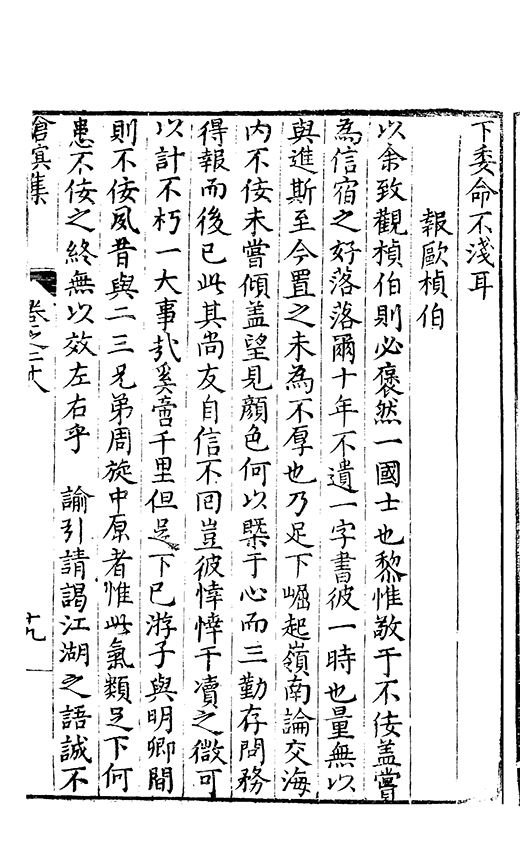 下委命不淺耳
報歐楨伯
以余致觀楨伯則必褎然一國士也黎惟敬于不佞盖嘗
為信宿之好落落爾十年不遺一字書彼一時也量無以
與進斯至今置之未為不厚也乃足下崛起嶺南論交海
内不佞未嘗傾盖望見顔色何以槩于心而三勤存問務
得報而後已此其尚友自信不囘豈彼悻悻干瀆之微可
以計不朽一大事哉奚啻千里但足下已游子與明卿間
則不佞夙昔與二三兄弟周旋中原者惟此氣類足下何
患不佞之終無以效左右乎　諭引請謁江湖之語誠不
滄溟集
卷之二十八
十九